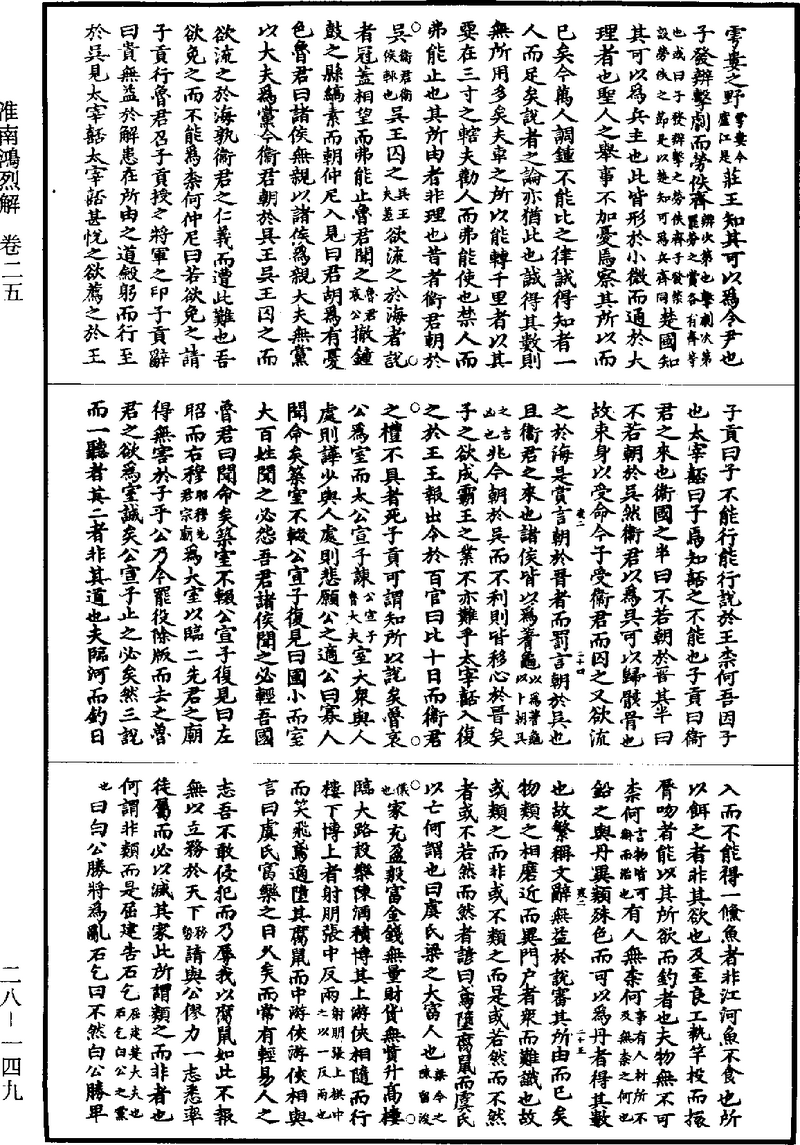 淮南鴻烈解 卷二五
二八—一四九
雩婁之野雩婁今廬江是莊王知其可以為令尹也
子發辨擊劇而勞佚齊辨次第也擊劇次第罷勞之賞各有齊等
也或曰子發辨擊之勞佚齊子發築設勞佚之節是以楚知可為兵齊同楚國知
其可以為兵主也此皆形於小微而通於大
理者也聖人之舉事不加憂焉察其所以而
已矣今萬人調鍾不能比之律誠得知者一
人而足矣說者之論亦猶此也誠得其數則
無所用多矣夫車之所以能轉千里者以其
要在三寸之轄夫勸人而弗能使也禁人而
弗能止也其所由者非理也昔者衛君朝於
吳衛君衛侯輒也吳王囚之吳王夫差欲流之於海者說
者冠蓋相望而弗能止魯君聞之魯君哀公撤鍾
鼓之縣縞素而朝仲尼入見曰君胡為有憂
色魯君曰諸侯無親以諸侯為親大夫無黨
以大夫為黨今衛君朝於吳王吳王囚之而
欲流之於海孰衛君之仁義而遭此難也吾
欲免之而不能為柰何仲尼曰若欲免之請
子貢行魯君召子貢授之將軍之印子貢辭
曰賞無益於解患在所由之道斂躬而行至
於吳見太宰嚭太宰嚭甚悅之欲薦之於王
子貢曰子不能行能行說於王柰何吾因子
也太宰嚭曰子焉知嚭之不能也子貢曰衛
君之來也衛國之半曰不若朝於晉其半曰
不若朝於吳然衛君以為吳可以歸骸骨也
故束身以受命今子受衛君而囚之又欲流
之於海是賞言朝於晉者而罰言朝於吳也
且衛君之來也諸侯皆以為蓍龜以為蓍龜以卜朝吳
之吉凶也兆今朝於吳而不利則皆移心於晉矣
子之欲成霸王之業不亦難乎太宰嚭入復
之於王王報出令於百官曰比十日而衛君
之禮不具者死子貢可謂知所以說矣魯哀
公為室而太公宣子諫公宣子魯大夫室大眾與人
處則譁少與人處則悲願公之適公曰寡人
聞命矣築室不輟公宣子復見曰國小而室
大百姓聞之必怨吾君諸侯聞之必輕吾國
魯君曰聞命矣築室不輟公宣子復見曰左
昭而右穆昭穆先君宗廟為大室以臨二先君之廟
得無害於子乎公乃令罷役除版而去之魯
君之欲為室誠矣公宣子止之必矣然三說
而一聽者其二者非其道也夫臨河而釣日
入而不能得一鯈魚者非江河魚不食也所
以餌之者非其欲也及至良工執竿投而擐
脣吻者能以其所欲而釣者也夫物無不可
柰何言物皆可術而治也有人無柰何事有人材所不及無柰之何也
鉛之與丹異類殊色而可以為丹者得其數
也故繁稱文辭無益於說審其所由而已矣
物類之相磨近而異門戶者眾而難識也故
或類之而非或不類之而是或若然而不然
者或不若然而然者諺曰鳶墮腐鼠而虞氏
以亡何謂也曰虞氏梁之大富人也梁今之陳留浚
儀也家充盈殷富金錢無量財貨無貲升高樓
臨大路設樂陳酒積博其上游俠相隨而行
樓下博上者射朋張中反兩射朋張上棋中之以一反兩也
而笑飛鳶適墮其腐鼠而中游俠游俠相與
言曰虞氏富樂之日久矣而常有輕易人之
志吾不敢侵犯而乃辱我以腐鼠如此不報
無以立務於天下務勢請與公僇力一志悉率
徒屬而必以滅其家此所謂類之而非者也
何謂非類而是屈建告石乞屈建楚大夫也石乞白公之黨
也曰白公勝將為亂石乞曰不然白公勝卑